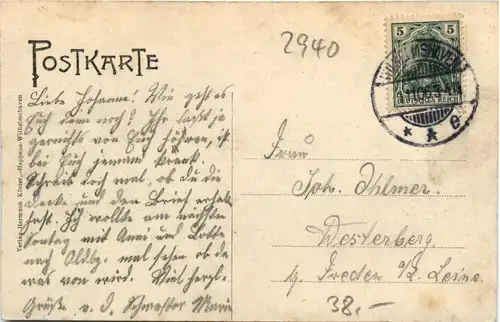 POSTKARTE
2940
5
DEUTSCHES REICH
Liebe Johanne! Wie geht es
Euch denn noch? Ihr laßt ja
garnichts von Euch hören, ist
bei Euch jemand krank.
Schreib doch mal, ob du die
Decke und den Brief erhalten
hast. Ich wollte am nächsten
Sontag mit Anni und Lotte
nach Oldbg. mal sehen ob da
was von wird. Viel herzl.
Grüße v. d. Schwester Marie
Verlag Hermann Heppens-Wilhelmshaven
Frau
Joh. Ohlmer.
Westerberg.
a. Leine.
38.-